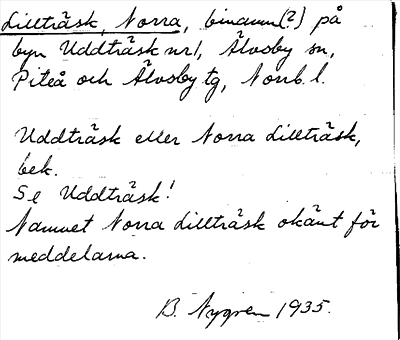 Lillträsk, Norra, binamn(?) på
byn Uddträsk nr 1, Älvsby sn,
Piteå och Älvsby tg, Norrb. l.
Uddträsk eller Norra Lillträsk,
bek.
Se Uddträsk!
Namnet Norra Lillträsk okänt för
meddelarna.
B. Nygren 1935.